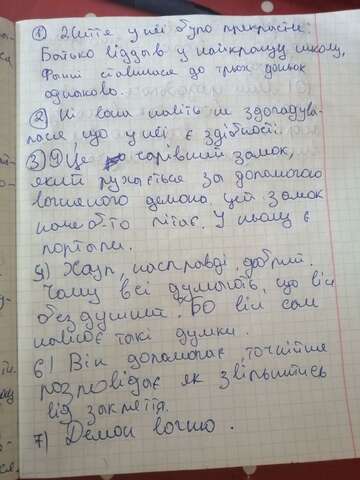 1) Життя у неї було прекрасне.
Батько віддав у найкращу школу,
Фанні ставилася до трьох доньок
однаково.
2) Ні вона навіть не здогадува-
лася, що у неї є здібності.
3) Це чарівний замок,
який рухається за допомогою
вогняного демона. Цей замок
наче б-то літає. У ньому є
портали.
4) Хаул, насправді, добрий.
Чому всі думають, що він
бездушний. Бо він сам
навіює такі думки.
6) Він допомагає, точніше
розповідає як звільнитись
від закляття.
7) Демон вогню.